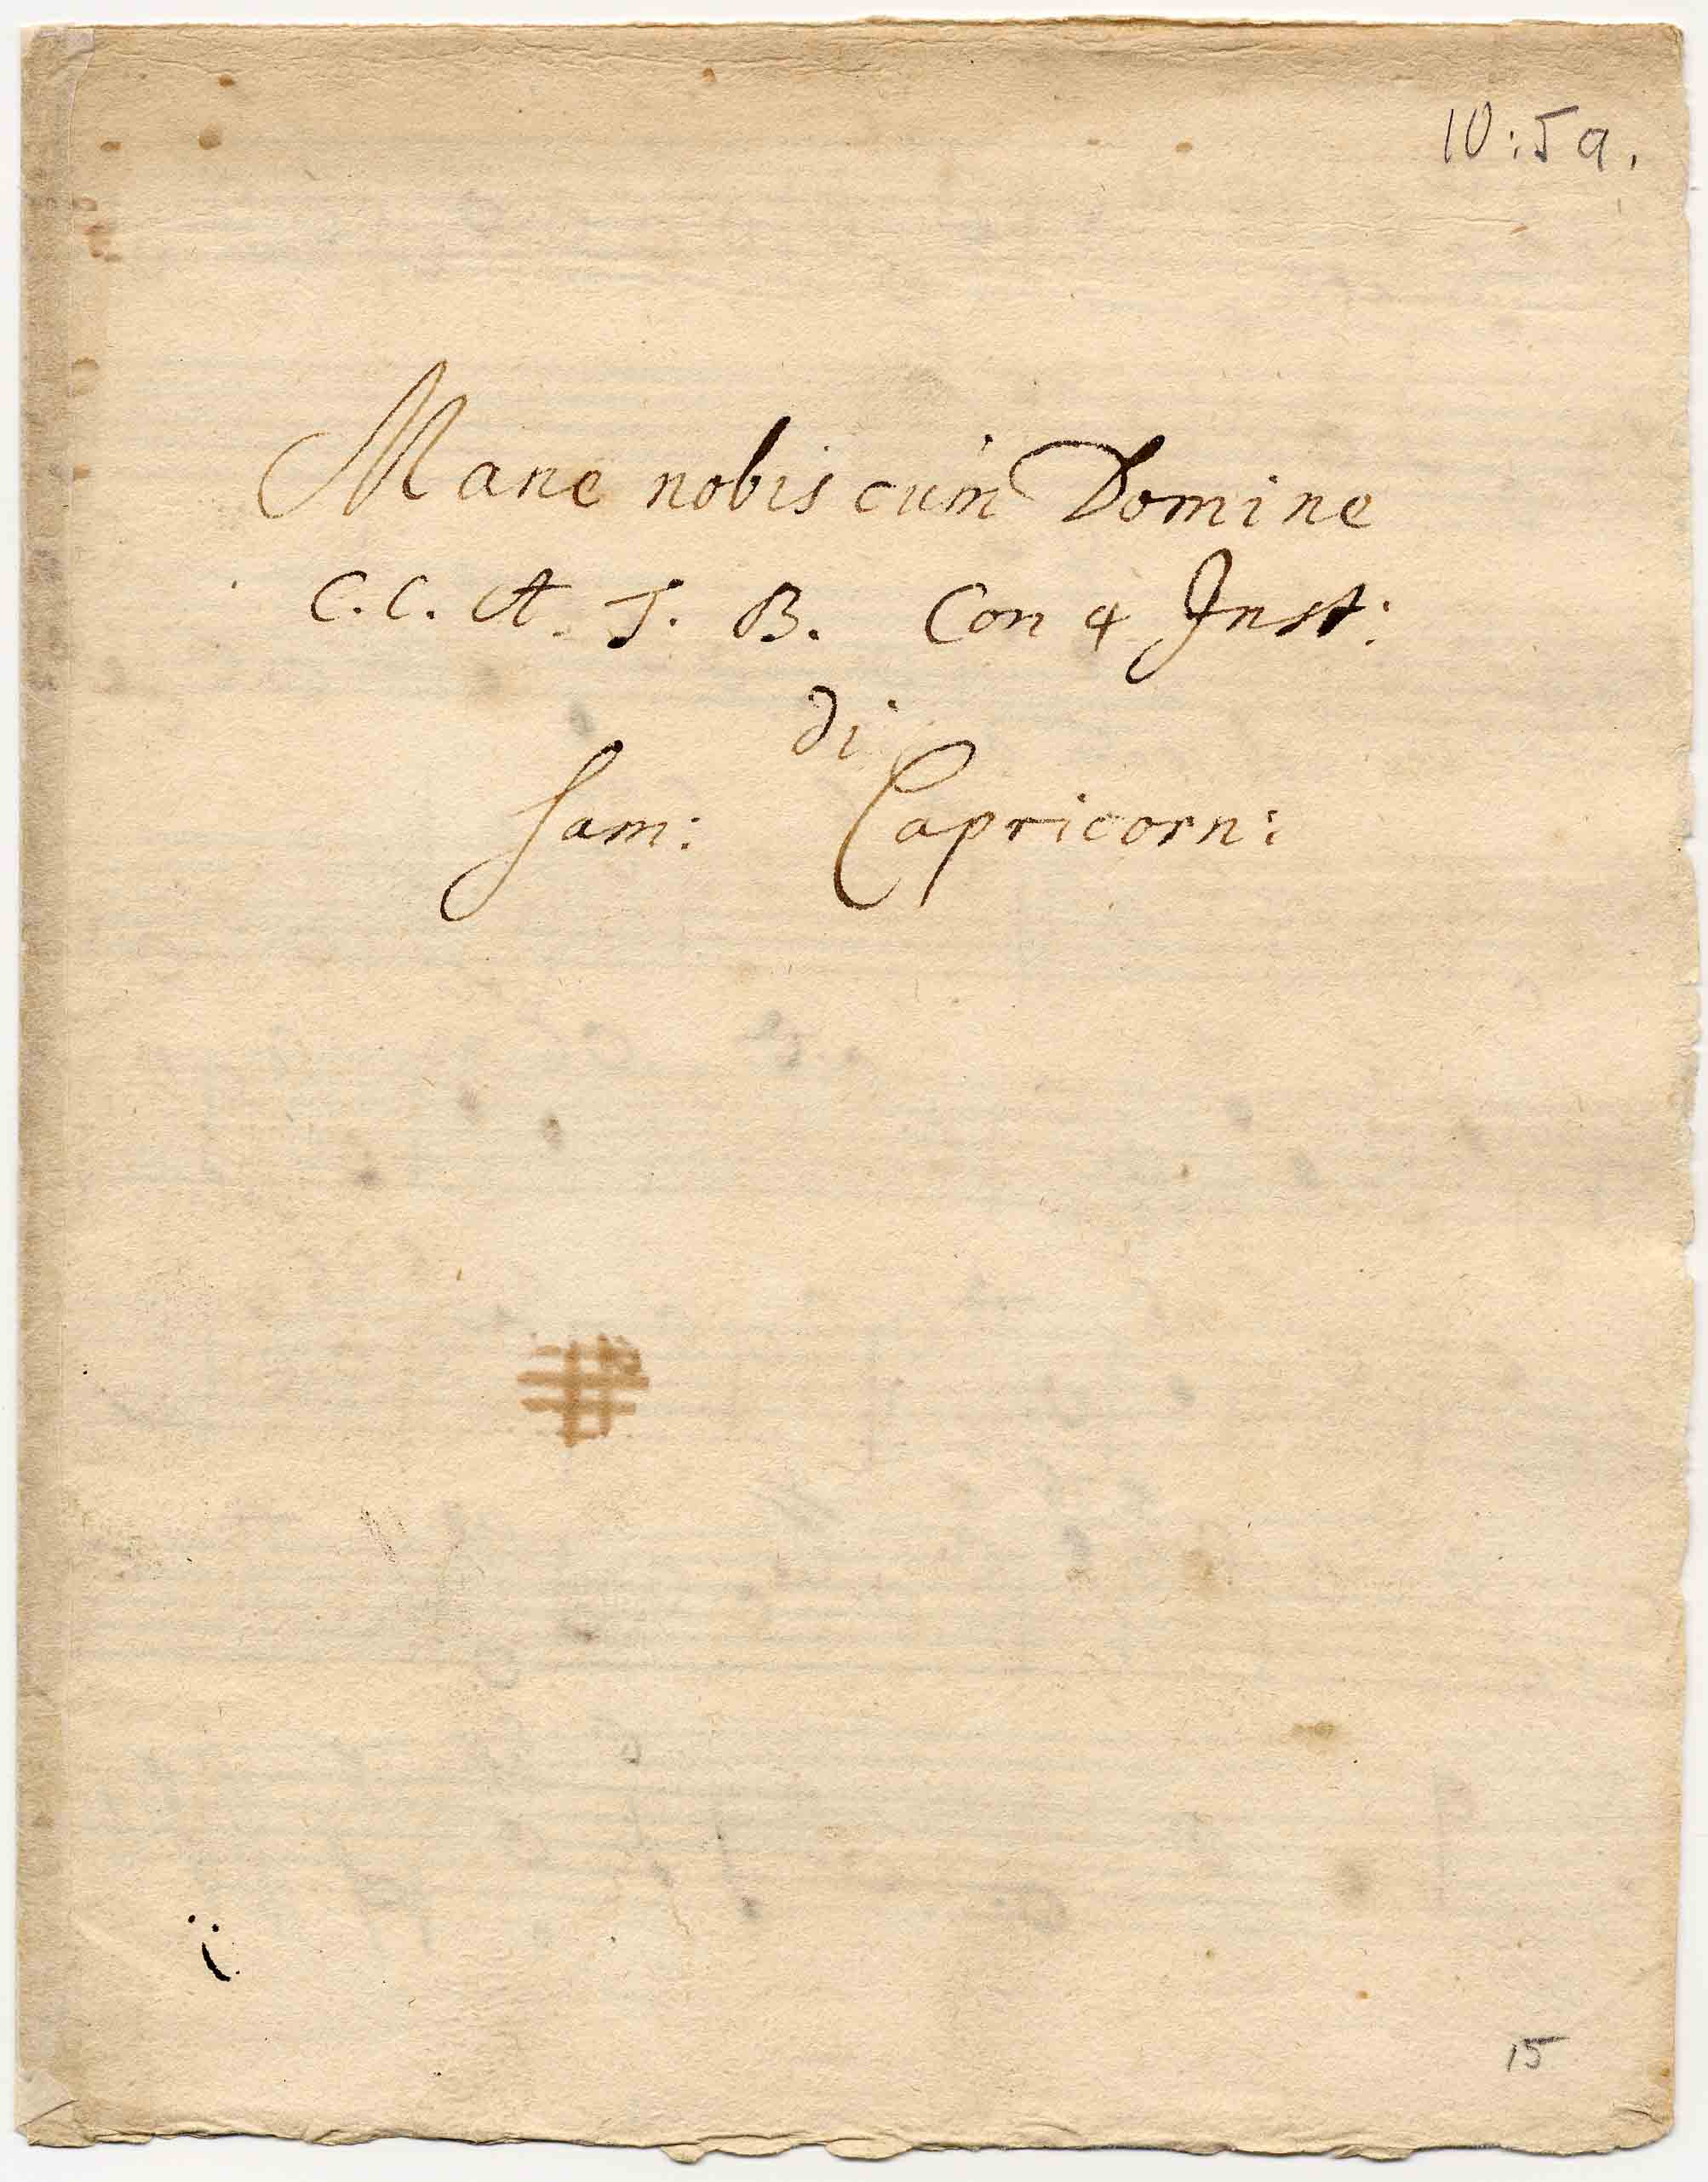 10:5a.
Mane nobiscum Domine
C. C. A. T. B. Con 4 Inst:
di
Sam: Capricorni
15